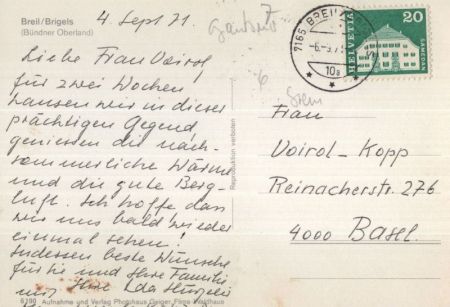 Breil/Brigels
(Bündner Oberland)
4. Sept 71.
Liebe Frau Voirol
für zwei Wochen
hausen wir in dieser
prächtigen Gegend,
geniessen die nach-
sommerliche Wärme
und die gute Berg-
luft. Ich hoffe dass
wir uns bald wieder
einmal sehen!
Indessen beste Wünsche
für Sie und Ihre Familie
Ihre Ida
6190 Aufnahme und Verlag Photohaus Geiger, Flims-Waldhaus
Reproduktion verboten
7165 BREIL
-6.-9.71
10a
HELVETIA
20
SAMEDAN
6
Frau
Voirol-Kopp
Reinacherstr. 276
4000 Basel.